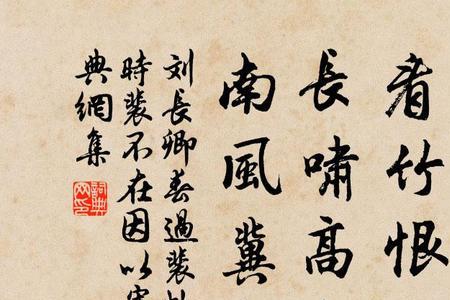 看竹恨
長嘯高
南風冀
刘長卿春過裴
時裴不在因以
典網集